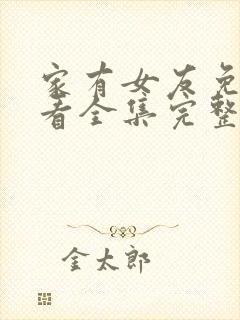 家有女友免
看全集完整
金太郎